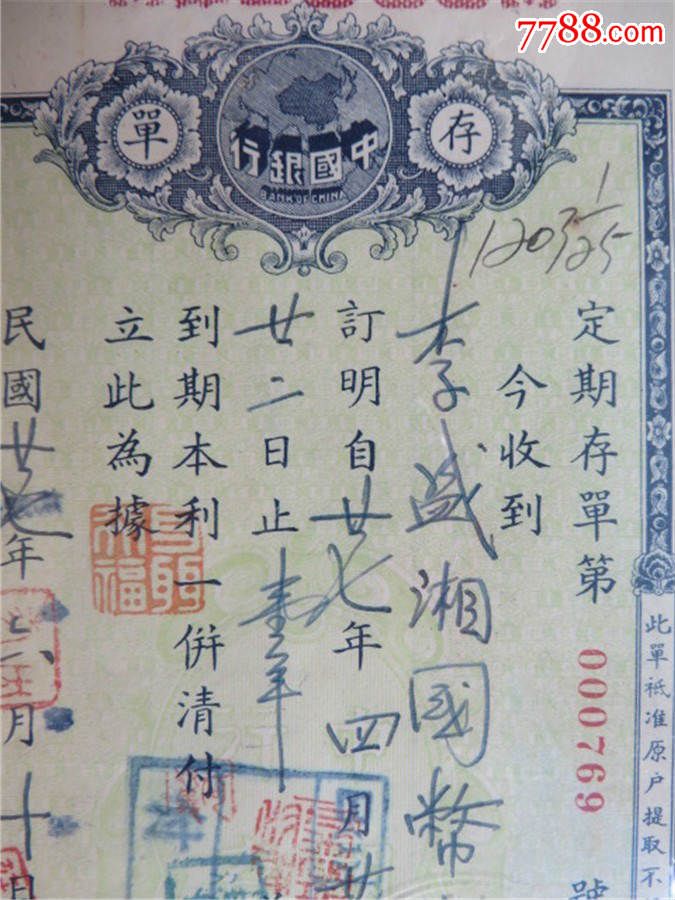 7788.com
單 存
行銀國中
BANK OF CHINA
定期存單第 000769 號
今收到
李盛湘國幣
訂明自廿七年四月廿
廿二日止壹年
到期本利一併清付
立此為據
民國廿七年 月十日
此單祗准原户提取不